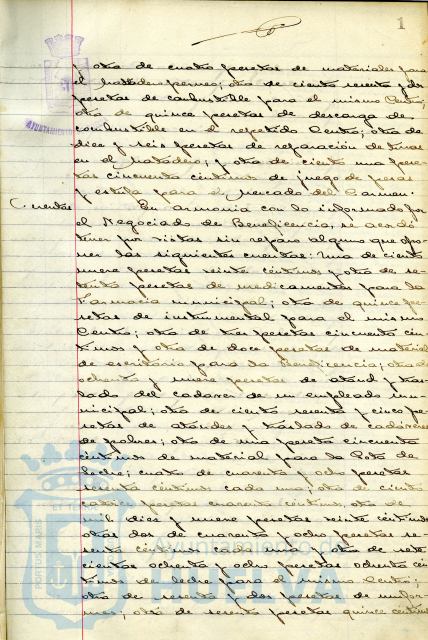 1
y otra de cuatro pesetas de materiales para
el Matadero ; otra de ciento sesenta y dos
pesetas de combustible para el mismo Centro;
otra de quince pesetas de descarga de
combustible en el repetido Centro; otra de
diez y seis pesetas de reparación de
en el Matadero; y otra de ciento una pese-
tas cincuenta céntimos de juego de pesas
y para el Mercado del Carmen.
Cuentas En armonía con lo informado por
el Negociado de Beneficencia, se acordó
tener por vistas sin reparo alguno que opo-
ner las siguientes cuentas: Una de ciento
nueve pesetas veinte céntimos y otra de se-
tenta pesetas de medicamentos para la
Farmacia municipal; otra de quince pe-
setas de instrumental para el mismo
Centro; otra de tres pesetas cincuenta cén-
timos y otra de doce pesetas de material
de escritorio para la Beneficencia; otra de
ochenta y nueve pesetas de ataud y tras-
lado del cadáver de un empleado mu-
nicipal; otra de ciento sesenta y cinco pe-
setas de ataudes y traslado de cadáveres
de pobres; otra de una peseta cincuenta
céntimos de material para la Gota de
leche; cuatro de cuarenta y ocho pesetas
sesenta céntimos cada una; otra de ciento
catorce pesetas cuarenta céntimos, otra de
mil diez y nueve pesetas veinte céntimos
otras dos de cuarenta y ocho pesetas se-
senta céntimos cada una y otra de sete-
cientas ochenta y ocho pesetas ochenta cén-
timos de leche para el mismo Centro;
otra de sesenta y dos pesetas de unifor-
mes; otra de sesenta pesetas quince céntimos
AYUNTAMIENTO
PORTUS MARIS
Ayuntamiento de
HUELVA